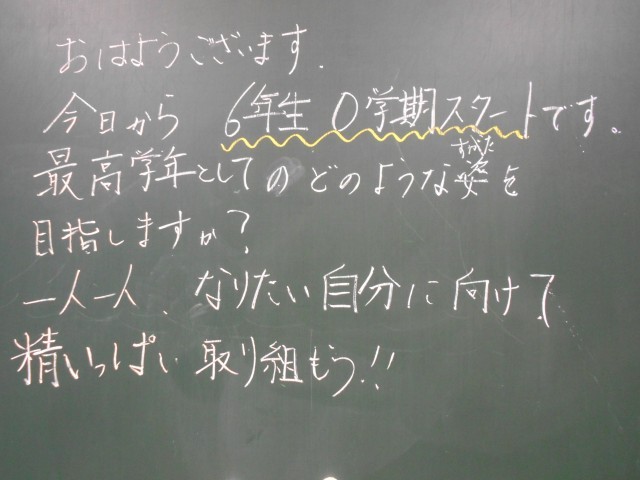 おはようございます.
今日から 6年生 0学期スタートです。
最高学年としての どのような姿を
すがた
目指しますか?
一人一人、なりたい自分に向けて
精いっぱい 取り組もう!!